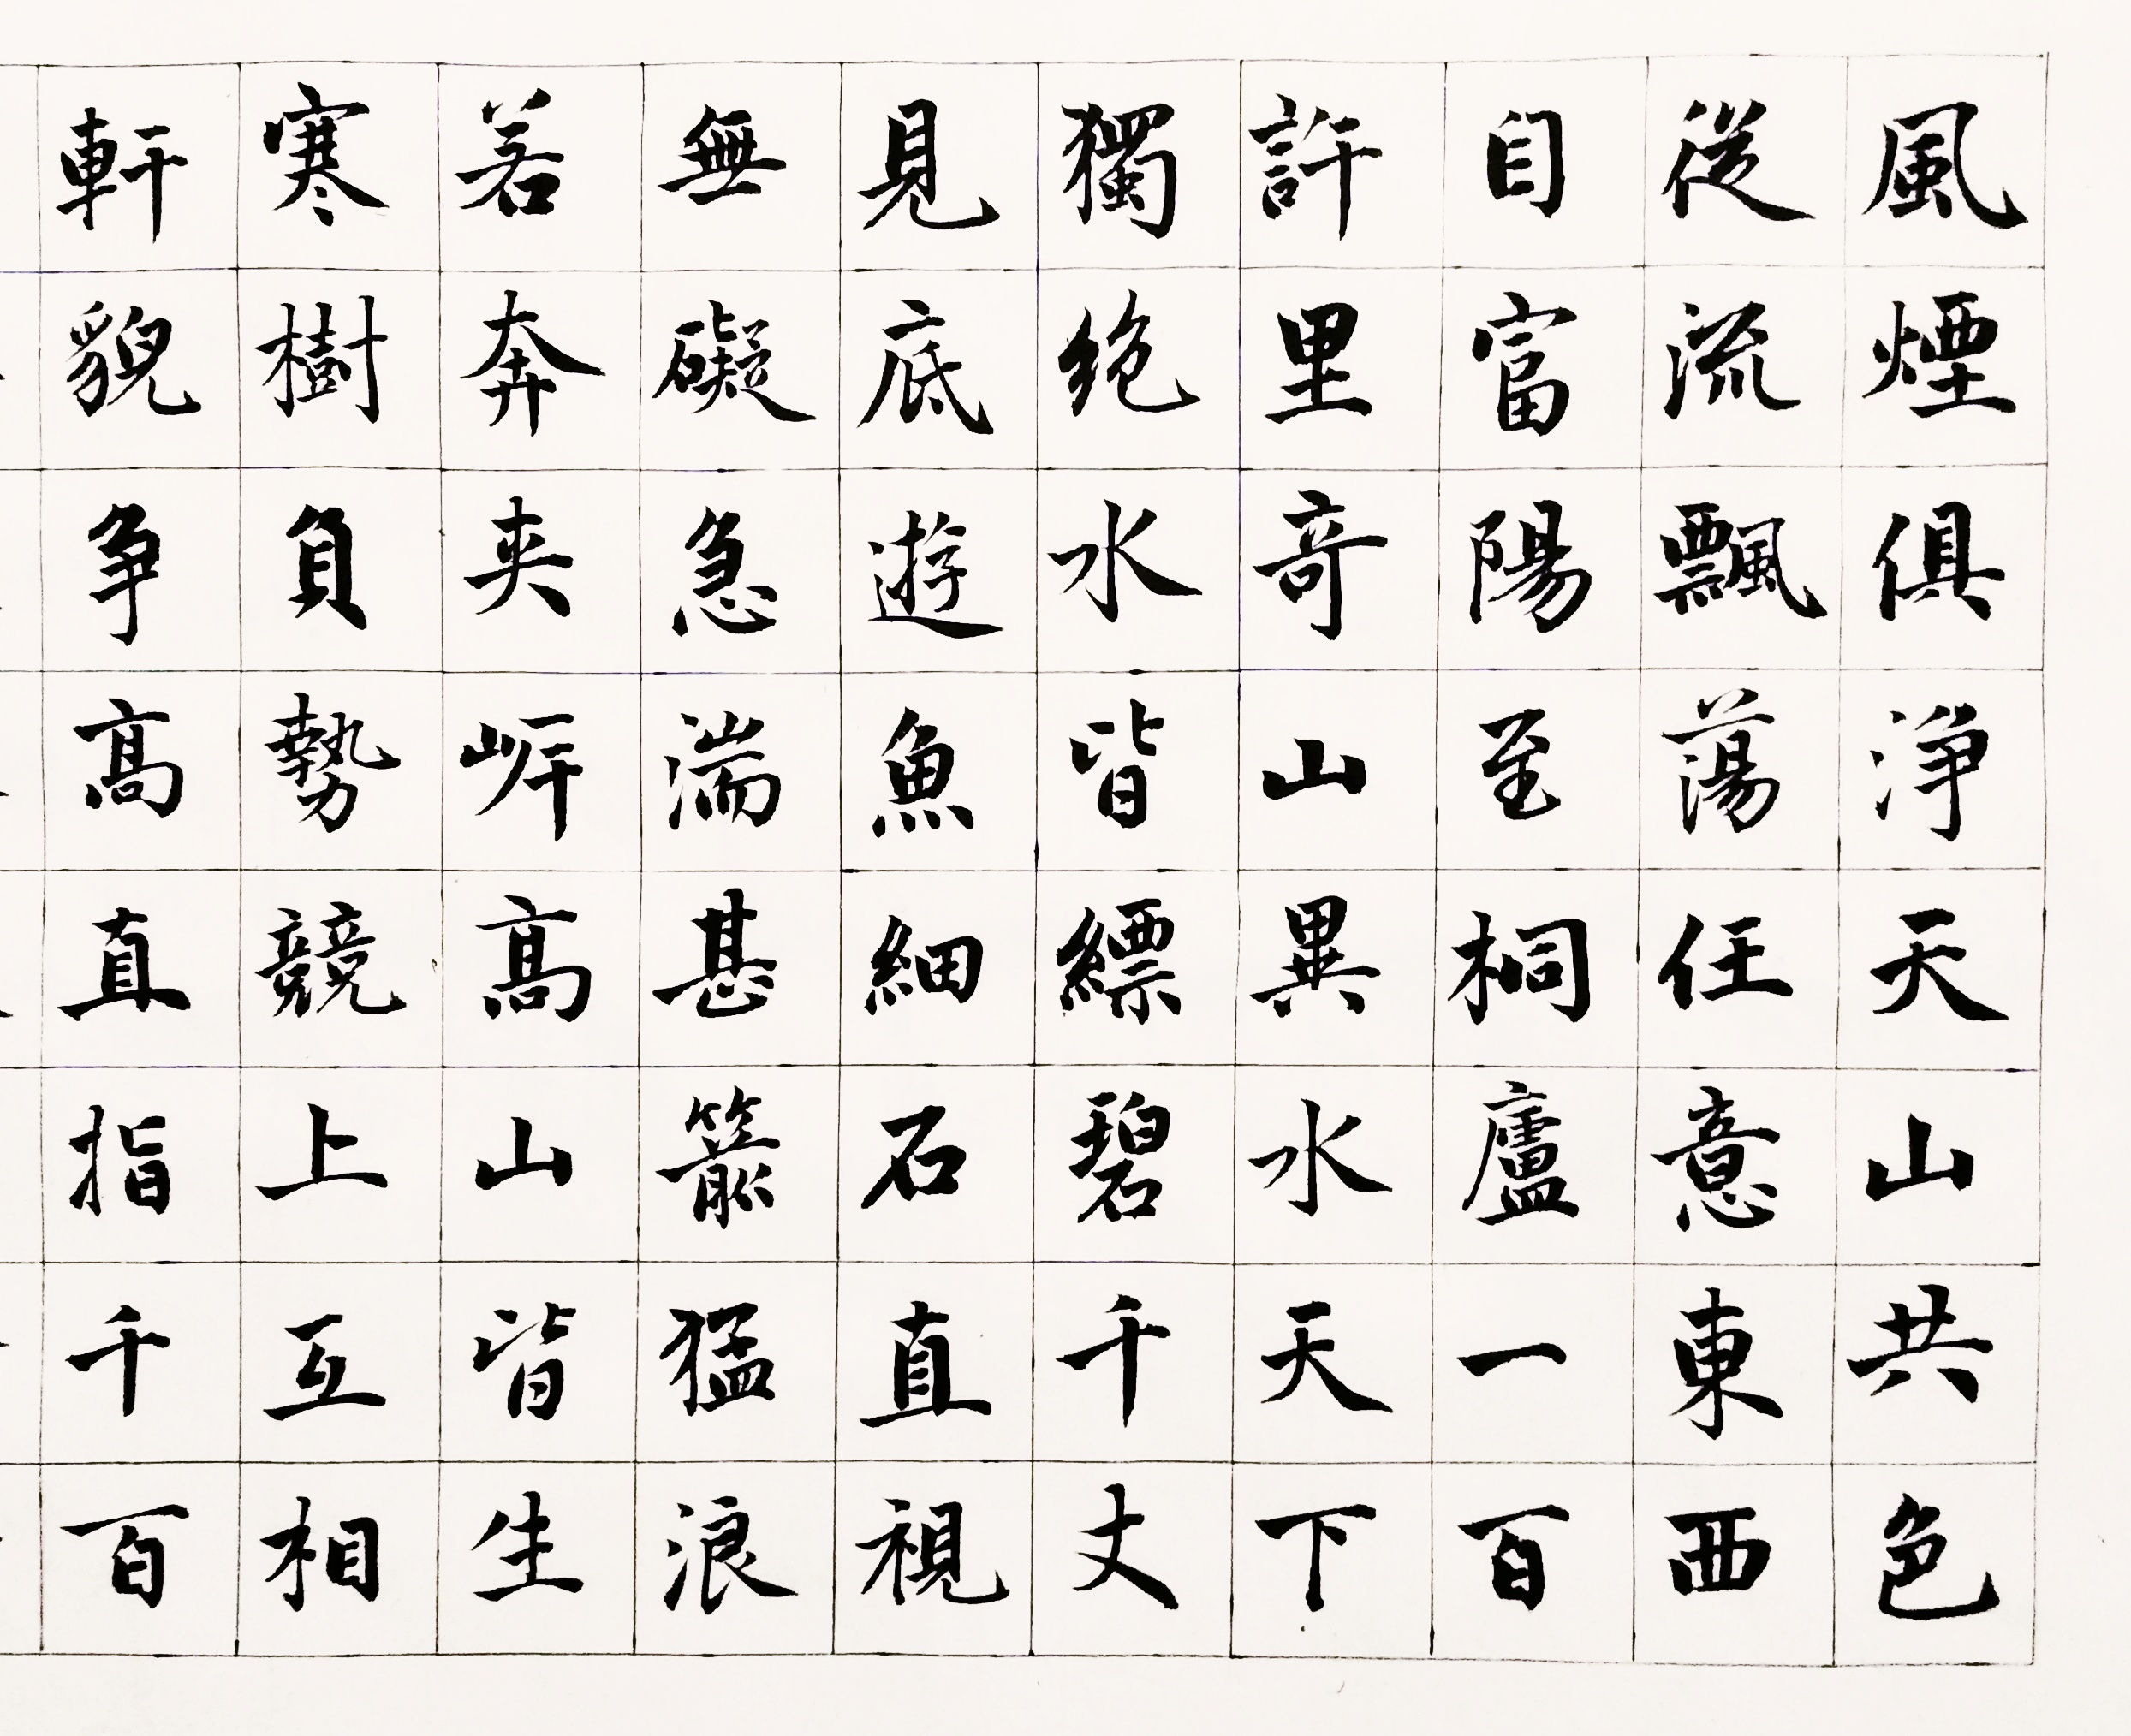 風煙俱淨天山共色
從流飄蕩任意東西
自富陽至桐廬一百
許里奇山異水天下
獨絶水皆縹碧千丈
見底遊魚細石直視
無礙急湍甚箭猛浪
若奔夾㟁高山皆生
寒樹負勢競上互相
軒邈争高直指千百